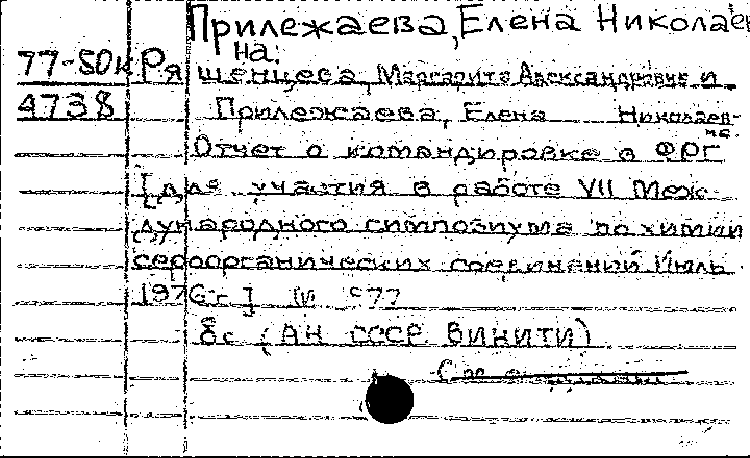 Прилежаева, Елена Николаев
на.
77-50к Рященцева, Маргарита Александровне и
4738 Прилежаева, Елена Николаев-
на.
Отчет о командировке в ФРГ
[для участия в работе VII Меж-
дународного симпозиума по химии
сероорганических соединений Июль
1976г.] М 977
8с (АН СССР ВИНИТИ)